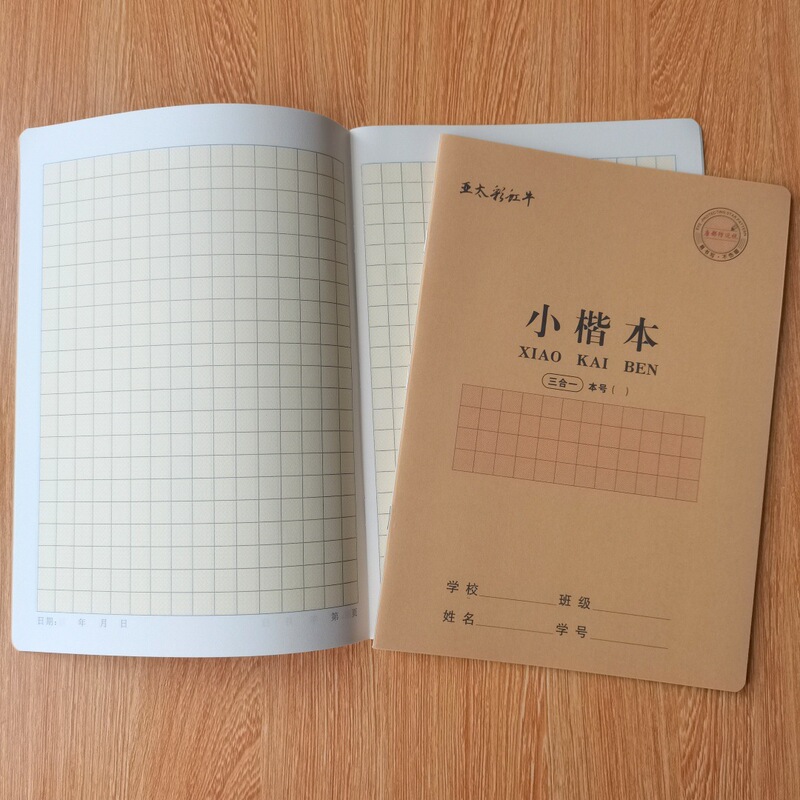 亚太彩红牛
小楷本
XIAO KAI BEN
三合一 本号( )
学校 班级
姓名 学号
日期: 年 月 日 第 页